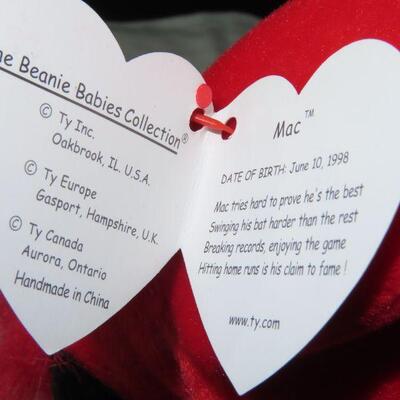 he Beanie Babies Collection®
© Ty Inc.
Oakbrook, IL. U.S.A.
© Ty Europe
Gasport, Hampshire, U.K.
© Ty Canada
Aurora, Ontario
Handmade in China
Mac™
DATE OF BIRTH: June 10, 1998
Mac tries hard to prove he's the best
Swinging his bat harder than the rest
Breaking records, enjoying the game
Hitting home runs is his claim to fame !
www.ty.com